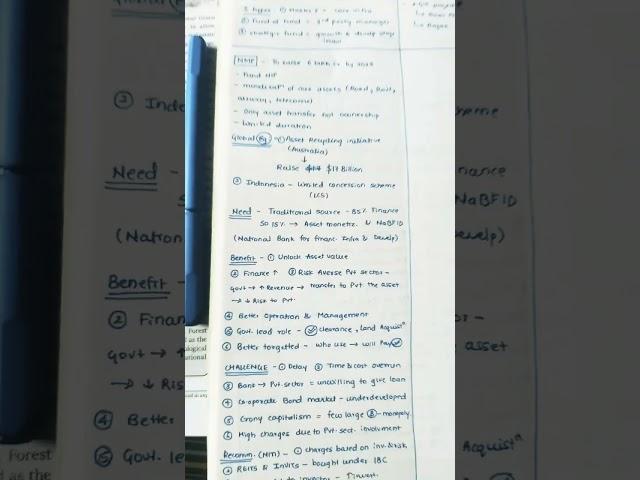 ② Fund of fund = 3rd party manager
③ Strategic fund = growth & develop stage
NMP - To raise 6 lakh cr by 2025
- Fund NIP
- monetisatn of core assets (Road, Rail,
airway, telecome)
- Only asset transfer not ownership
- limited duration
Global Eg - ① Asset Recycling initiative
(Australia)
↓
Raise $17 Billion
② Indonesia - limited concession scheme
(LCS)
Need - Traditional source - 85% Finance
so 15% → Asset monetiz. & NaBFID
(National Bank for financ. Infra & Develp)
Benefit - ① Unlock Asset value
② Finance ↑ ③ Risk Averse Pvt sector -
Govt → ↑ Revenue → transfer to Pvt. the asset
→ ↓ Risk to Pvt.
④ Better Operation & Management
⑤ Govt. lead role - ✓ clearance, Land Acquistn
⑥ Better targetted - who use → will Pay ✓
CHALLENGE - ① Delay ② Time & cost overrun
③ Bank → Pvt. sector = unwilling to give loan
④ Co-operate Bond market - underdevelopd
⑤ Crony capitalism = few large B - monopoly
⑥ High charges due to Pvt. sect. involvment
Recomm. (NITI) - ① charges based on inv. & risk
② REITS & InVITs - bought under IBC
Forest
d as the